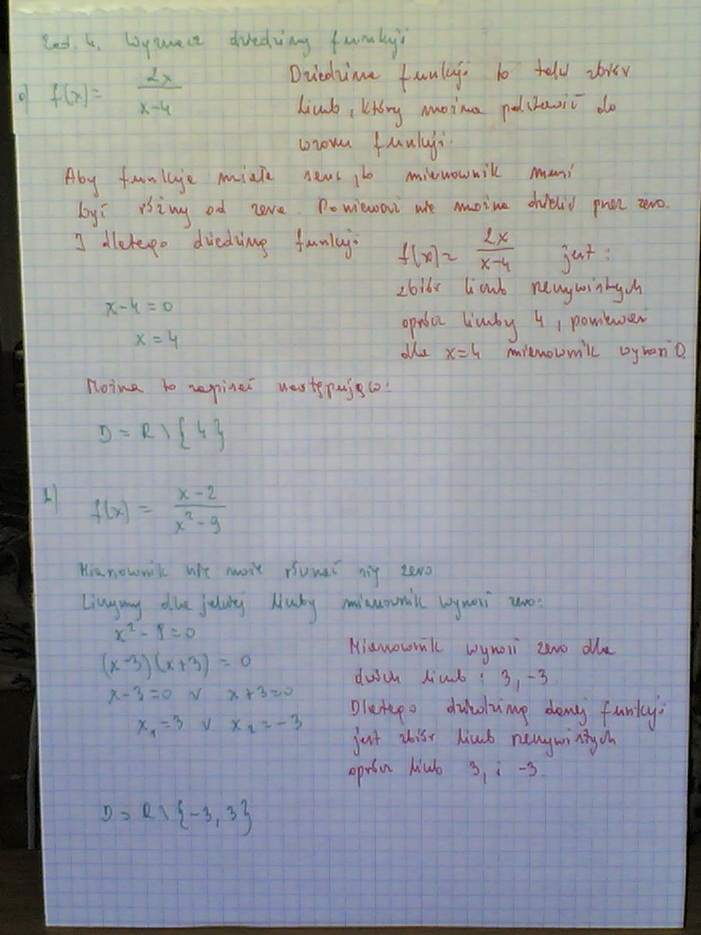 Zad. 4. Wyznacz dziedzinę funkcji
a) f(x) = 2x / x-4
Dziedzina funkcji to taki zbiór
liczb, który można podstawić do
wzoru funkcji.
Aby funkcja miała sens, to mianownik musi
być różny od zera. Ponieważ nie można dzielić przez zero.
I dlatego dziedziną funkcji
f(x) = 2x / x-4 jest:
zbiór liczb rzeczywistych
oprócz liczby 4, ponieważ
dla x=4 mianownik wynosi 0.
x-4=0
x=4
Można to zapisać następująco:
D = R \ {4}
b) f(x) = x-2 / x²-9
Mianownik nie może równać się zero
Liczymy dla jakiej liczby mianownik wynosi zero:
x²-9=0
(x-3)(x+3)=0
x-3=0 v x+3=0
x₁=3 v x₂=-3
Mianownik wynosi zero dla
dwóch liczb: 3, -3.
Dlatego dziedziną danej funkcji
jest zbiór liczb rzeczywistych
oprócz liczb 3, i -3.
D = R \ {-3, 3}